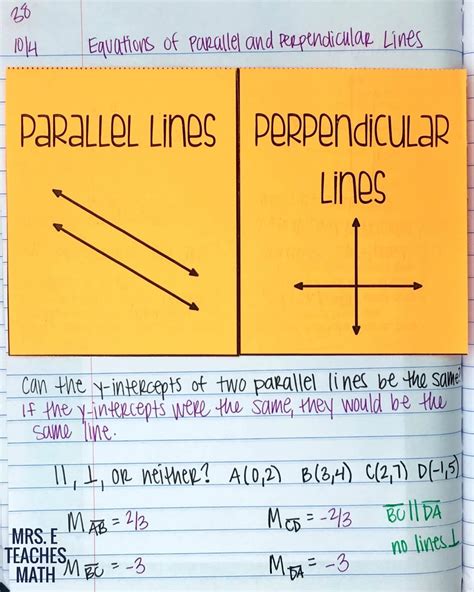 38
10/4 Equations of Parallel and Perpendicular Lines
Parallel Lines
Perpendicular Lines
Can the y-intercepts of two parallel lines be the same?
If the y-intercepts were the same, they would be the
same line.
||, ⊥, or neither? A(0,2) B(3,4) C(2,7) D(-1,5)
M_AB = 2/3 M_CD = -2/3 BC||DA
no lines ⊥
M_BC = -3 M_DA = -3
MRS. E
TEACHES
MATH